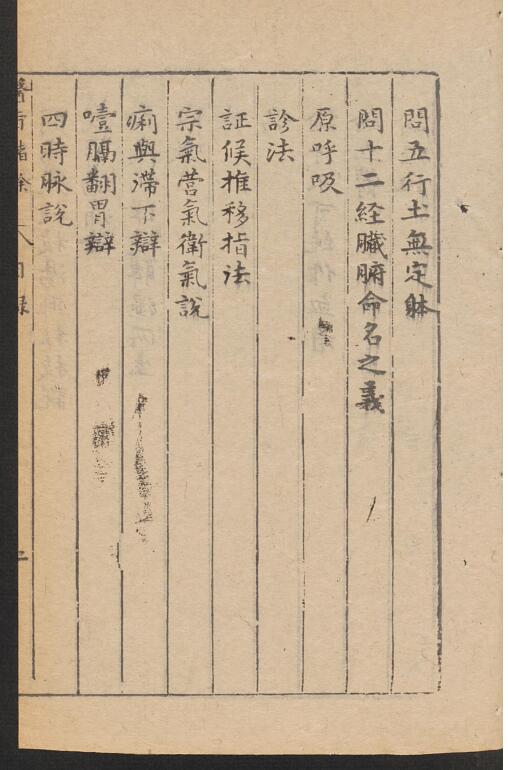 問五行土無定躰
問十二経臟腑命名之義
原呼吸
診法
証候推移指法
宗氣営氣衛氣説
痢與滯下辯
噎膈翻胃辯
四時脉説